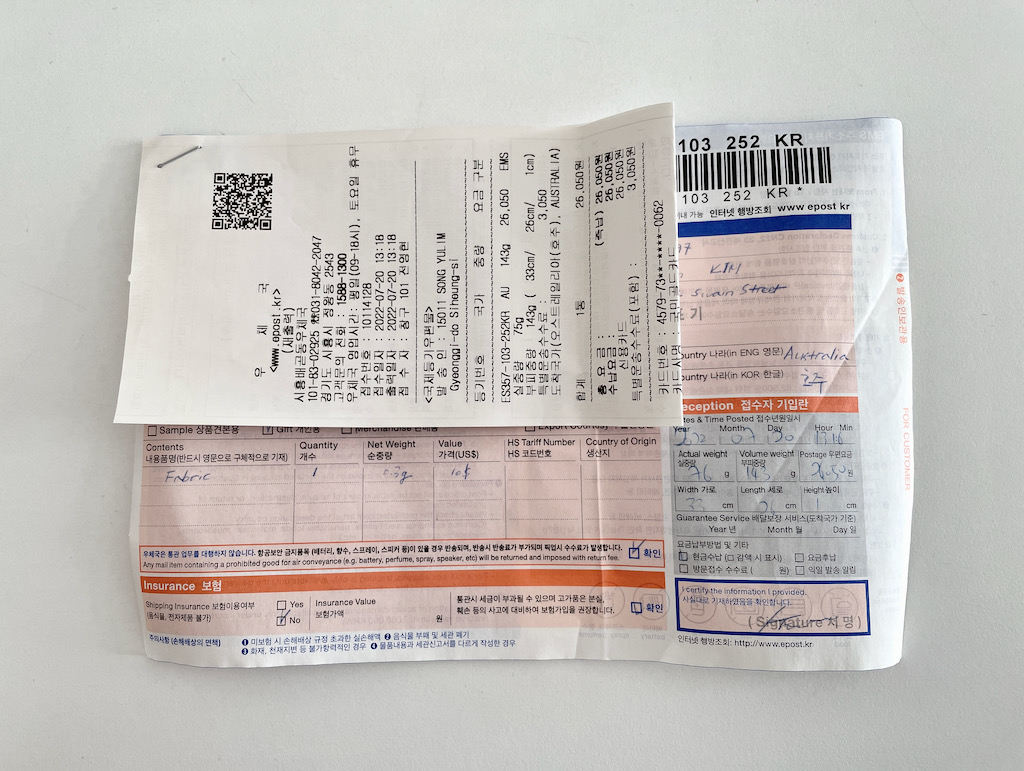 우 체 국
<www.epost.kr>
(재출력)
시흥배곧동우체국
101-83-02925 ☎031-8042-2047
경기도 시흥시 정왕동 2543
고객문의 전화 : 1588-1300
우체국 영업시간: 평일(09-18시), 토요일 휴무
접수번호 : 10114128
접수일자 : 2022-07-20 13:18
출력일자 : 2022-07-20 13:18
접 수 자 : 창구 101 전영현
<국제등기우편물>
발 송 인 : 15011 SONG YULIM
Gyeonggi-do Siheung-si
등기번호 국가 중량 요금 구분
ES357-103-252KR AU 143g 26,050 EMS
실중량 : 75g
부피중량 : 143g ( 33cm/ 26cm/ 1cm)
특별운송수수료 : 3,050
도착국가(오스트레일리아(호주), AUSTRALIA)
합계 1통 26,050원
총 요 금 : (즉납) 26,050원
수납요금 : 26,050원
신용카드 26,050원
특별운송수수료(포함) : 3,050원
카드번호 : 4579-73**-****-0052
카드사명 : 국민카드
103 252 KR
103 252 KR *
인터넷 행방조회 www.epost kr
KIM
Swain Street
기
ountry 나라(in ENG 영문) Australia
ountry 나라(in KOR 한글) 호주
eception 접수자 기입란
tes & Time Posted 접수년원일시
Year Month Day Hour Min
2022 07 20 13 16
Actual weight 실중량 76 g
Volume weight 부피중량 143 g
Postage 우편요금 26050 원
Width 가로 33 cm
Length 세로 26 cm
Height 높이 1 cm
Guarantee Service 배달보장 서비스(도착국가 기준)
Year 년 Month 월 Day 일
요금납부방법 및 기타
현금수납 (□감액 시 표시) □ 요금후납
□ 방문접수 수수료 ( 원) □ 익일 발송 알림
I certify the information I provided.
사실대로 기재하였음을 확인합니다.
(Signature 서명)
인터넷 행방조회: http://www.epost.kr
□ Sample 상품견본용 Gift 개인용 □ Merchandise 판매용
Contents
내용품명(반드시 영문으로 구체적으로 기재)
Quantity
개수
Net Weight
순중량
Value
가격(US$)
HS Tariff Number
HS 코드번호
Country of Origin
생산지
Fabric 1 0.3g 10$
우체국은 통관 업무를 대행하지 않습니다. 항공보안 금지품목 (배터리, 향수, 스프레이, 스피커 등)이 있을 경우 반송되며, 반송시 반송료가 부가되며 픽업시 수수료가 발생합니다.
Any mail item containing a prohibited good for air conveyance (e.g. battery, perfume, spray, speaker, etc) will be returned and imposed with return fee.
확인
Insurance 보험
Shipping Insurance 보험이용여부
(음식물, 전자제품 불가)
□ Yes
No
Insurance Value
보험가액 원
통관시 세금이 부과될 수 있으며 고가품은 분실,
훼손 등의 사고에 대비하여 보험가입을 권장합니다.
확인
주의사항 (손해배상의 면책) ❶ 미보험 시 손해배상 규정 초과한 실손해액 ❷ 음식물 부패 및 세관 폐기
❸ 화재, 천재지변 등 불가항력적인 경우 ❹ 물품내용과 세관신고서를 다르게 작성한 경우
❷ 발송인보관용
FOR CUSTOMER